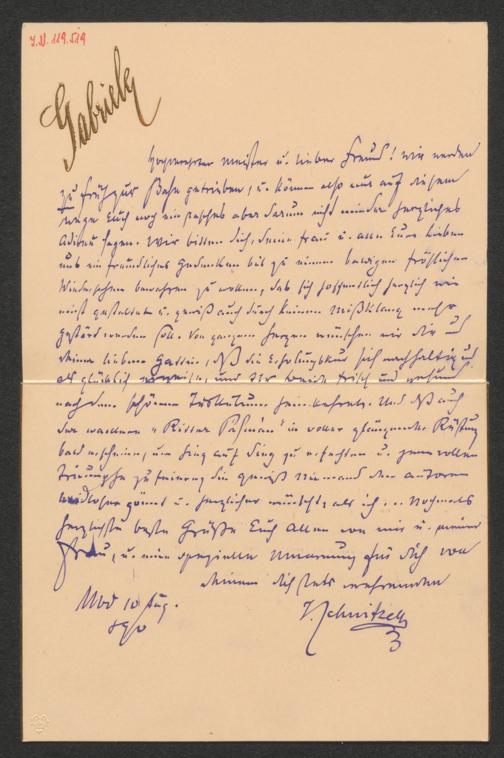 I.N. 119.519
Gabriele
Hochverehrter Meister u. lieber Freund! Wir werden
zu früh zur Bahn getrieben, u. können also nur auf diesem
Wege Euch noch ein rasches aber darum nicht minder herzliches
Adieu sagen. Wir bitten Dich, Deine Frau u. alle Eure Lieben
uns ein freundliches Gedenken bis zu einem baldigen fröhlichen
Wiedersehen bewahren zu wollen, das sich hoffentlich herzlich wie
gestaltet u. gewiß auch durch keinen Mißklang mehr
gestört werden soll. Von ganzem Herzen wünschen wir Dir u
Deiner lieben Gattin, daß die Erholungskur sich nachhaltig u
als glücklich erweise, und Ihr beide frisch und gesund
nach dem schönen Tuskulum heimkehret. Und daß auch
der wackere "Ritter Pásmán" in voller glänzender Rüstung
bald erscheine, um Sieg auf Sieg zu erfechten u. jene vollen
Triumphe zu feiern, die gewiß Niemand den anderen
neidloser gönnt u. herzlicher wünscht als ich ... Nochmals
herzlichste beste Grüße Euch Allen von mir u. meiner
Frau, u. eine spezielle Umarmung für Dich von
Deinem Dich stets verehrenden
10 Aug.
890
I. Schnitzer